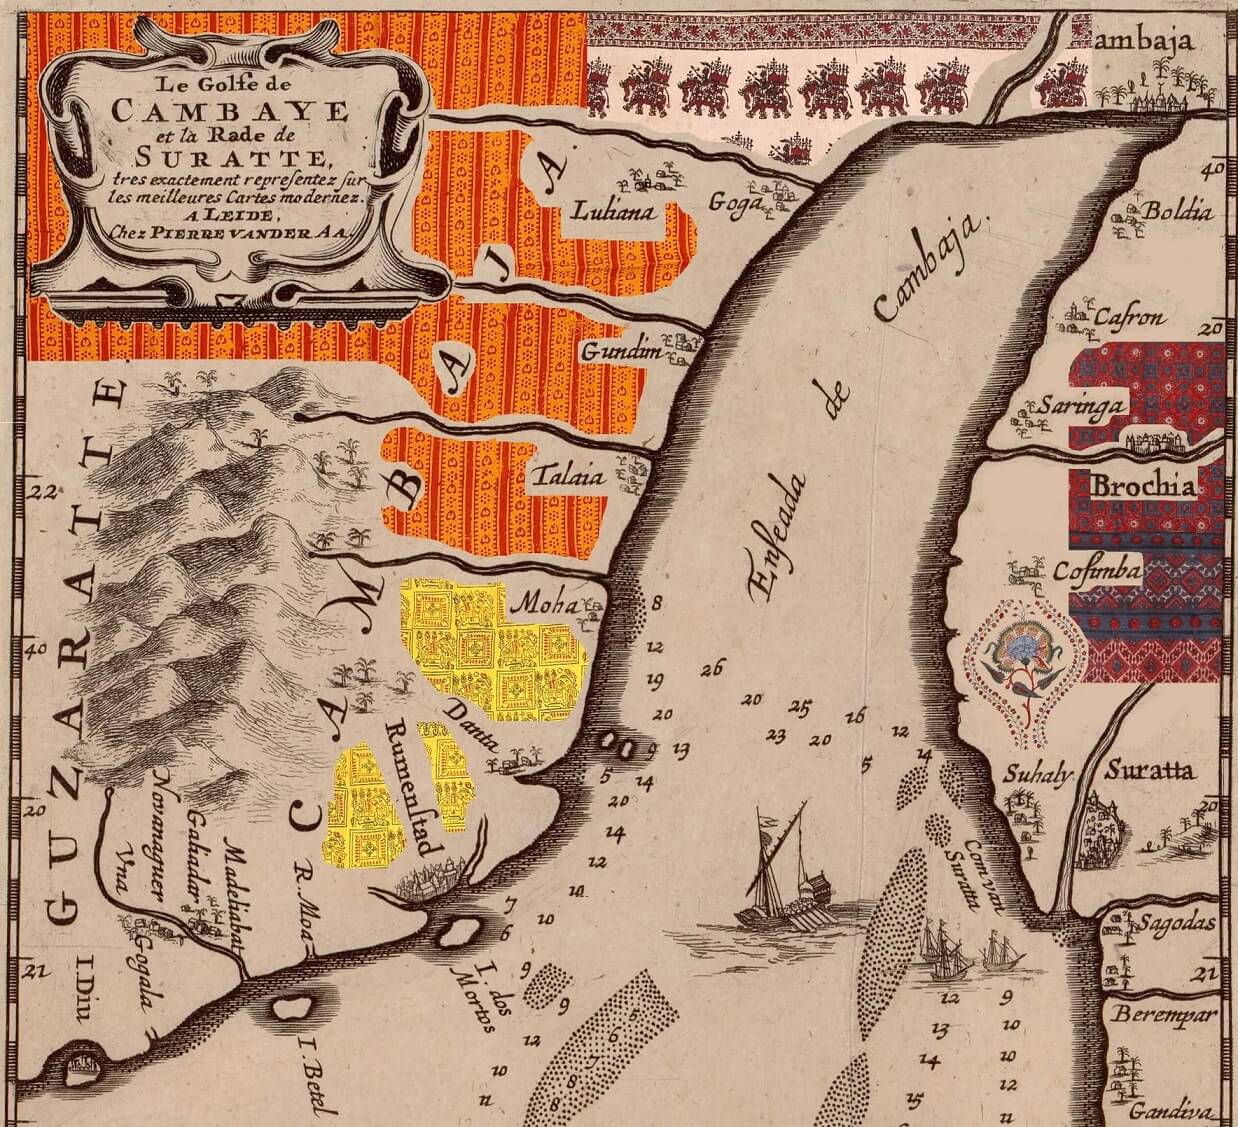 Le Golfe de
CAMBAYE
et la Rade de
SURATTE,
tres exactement representez sur
les meilleures Cartes modernes.
A LEIDE,
Chez PIERRE VANDER AA.
ambaja
40
Luliana
Goga
Boldia
Cambaja.
de
Enseada
Cafron
20
Gundim
Saringa
Talaia
22
Brochia
Cosimba
CAMBAJA
GUZARATTE
Moha
8
12
40
19
26
20
20
25
16
23
20
12
9
13
5
14
5
14
Danta
Rumenstad
Suhaly
Suratta
20
20
20
14
12
Novanaguer
Galiandar
Madeliabat
Vna
Gogala
R. Moa
Com van
Suratta
10
7
10
6
Sagodas
21
21
I. Diu
I. dos
Mortos
9
9
5
6
7
8
8
12
10
11
12
9
13
10
14
10
12
15
11
Berempar
I. Betel
Gandiva